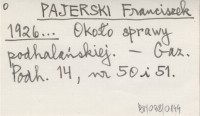 PAJERSKI Franciszek
1926... Około sprawy
podhalańskiej. — Gaz.
Podh. 14, nr 50 i 51.